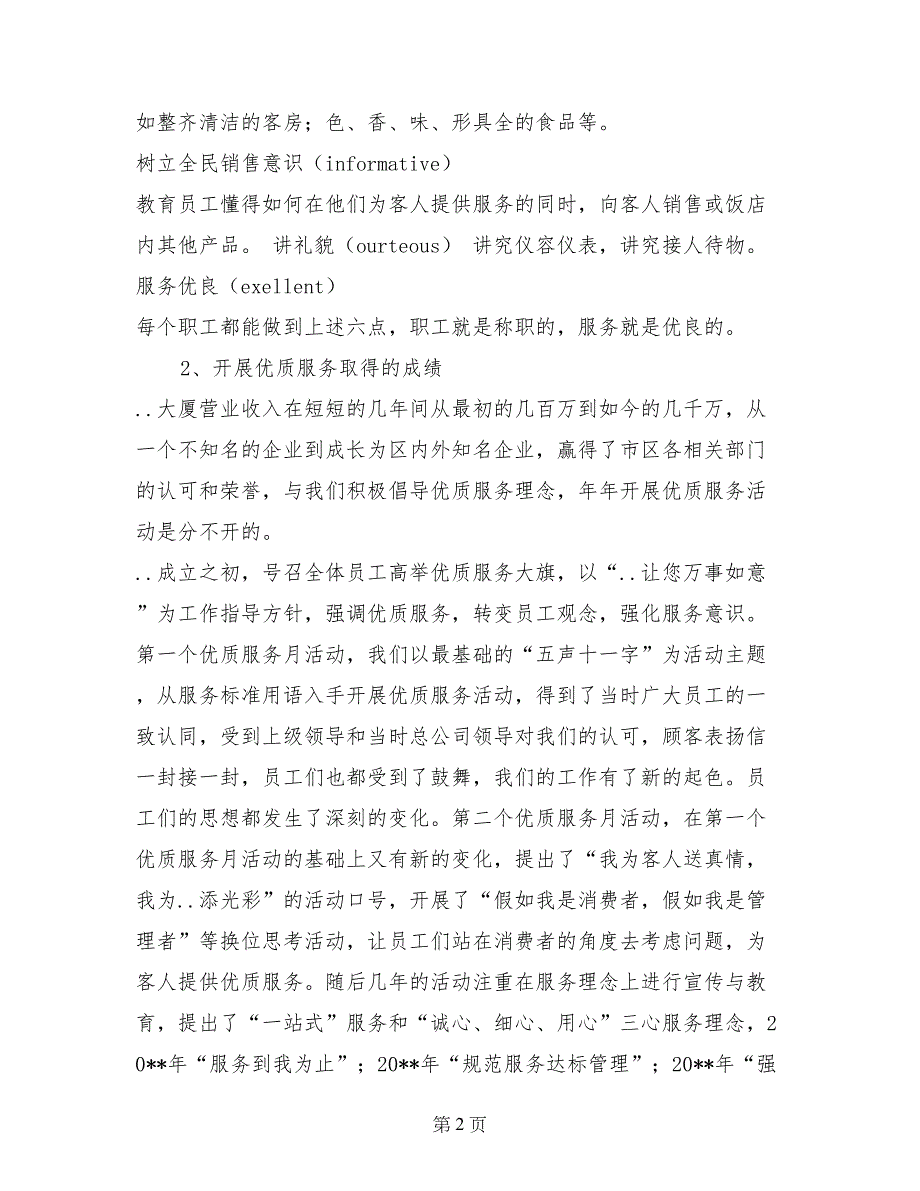 如整齐清洁的客房；色、香、味、形具全的食品等。
树立全民销售意识（informative）
教育员工懂得如何在他们为客人提供服务的同时，向客人销售或饭店
内其他产品。 讲礼貌（ourteous） 讲究仪容仪表，讲究接人待物。
服务优良（exellent）
每个职工都能做到上述六点，职工就是称职的，服务就是优良的。
2、开展优质服务取得的成绩
..大厦营业收入在短短的几年间从最初的几百万到如今的几千万，从
一个不知名的企业到成长为区内外知名企业，赢得了市区各相关部门
的认可和荣誉，与我们积极倡导优质服务理念，年年开展优质服务活
动是分不开的。
..成立之初，号召全体员工高举优质服务大旗，以“..让您万事如意
”为工作指导方针，强调优质服务，转变员工观念，强化服务意识。
第一个优质服务月活动，我们以最基础的“五声十一字”为活动主题
，从服务标准用语入手开展优质服务活动，得到了当时广大员工的一
致认同，受到上级领导和当时总公司领导对我们的认可，顾客表扬信
一封接一封，员工们也都受到了鼓舞，我们的工作有了新的起色。员
工们的思想都发生了深刻的变化。第二个优质服务月活动，在第一个
优质服务月活动的基础上又有新的变化，提出了“我为客人送真情，
我为..添光彩”的活动口号，开展了“假如我是消费者，假如我是管
理者”等换位思考活动，让员工们站在消费者的角度去考虑问题，为
客人提供优质服务。随后几年的活动注重在服务理念上进行宣传与教
育，提出了“一站式”服务和“诚心、细心、用心”三心服务理念，2
0**年“服务到我为止”；20**年“规范服务达标管理”；20**年“强
第 2 页